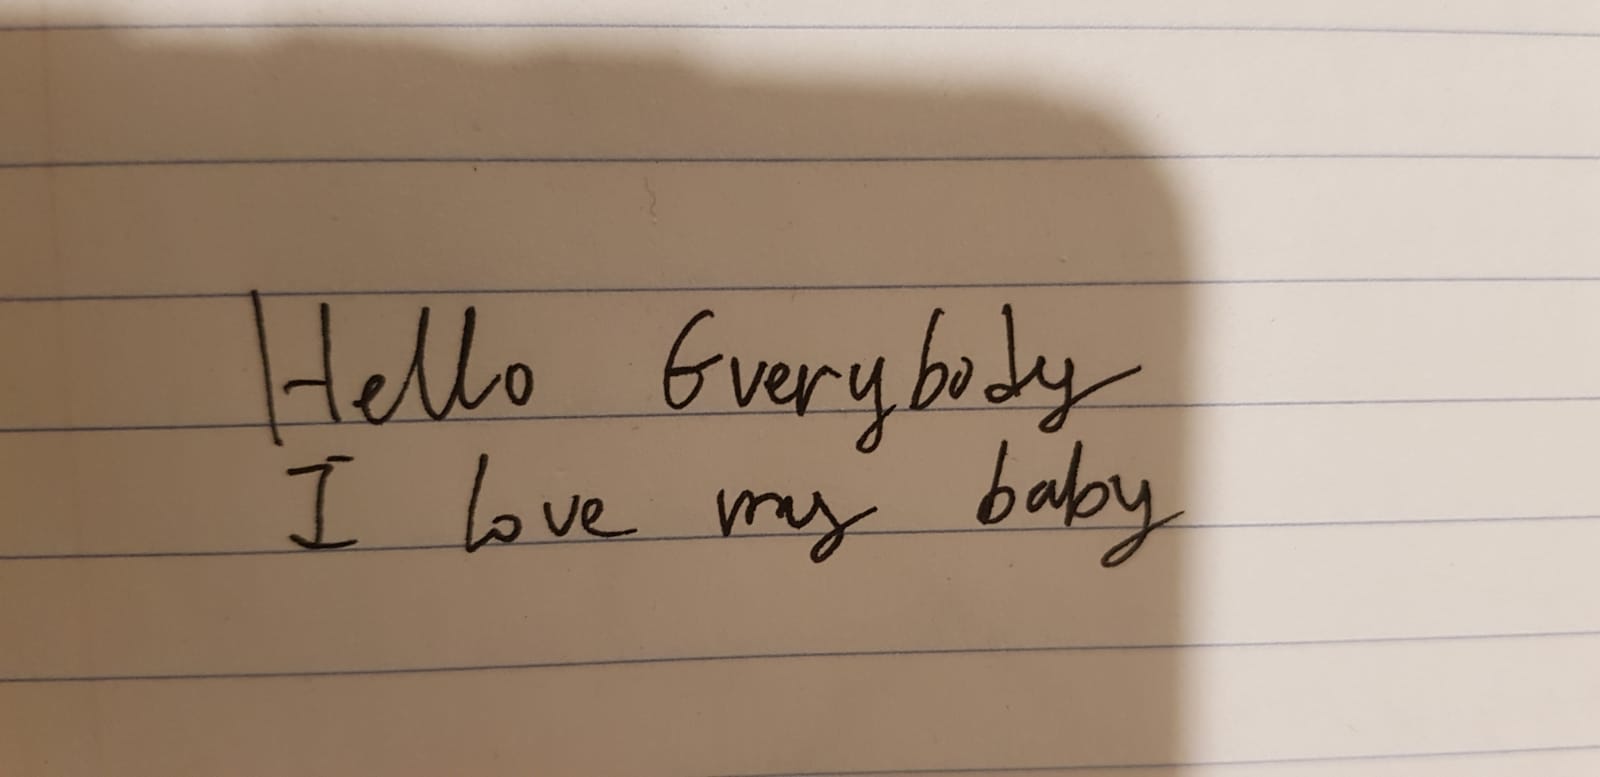 Hello Everybody
I love my baby